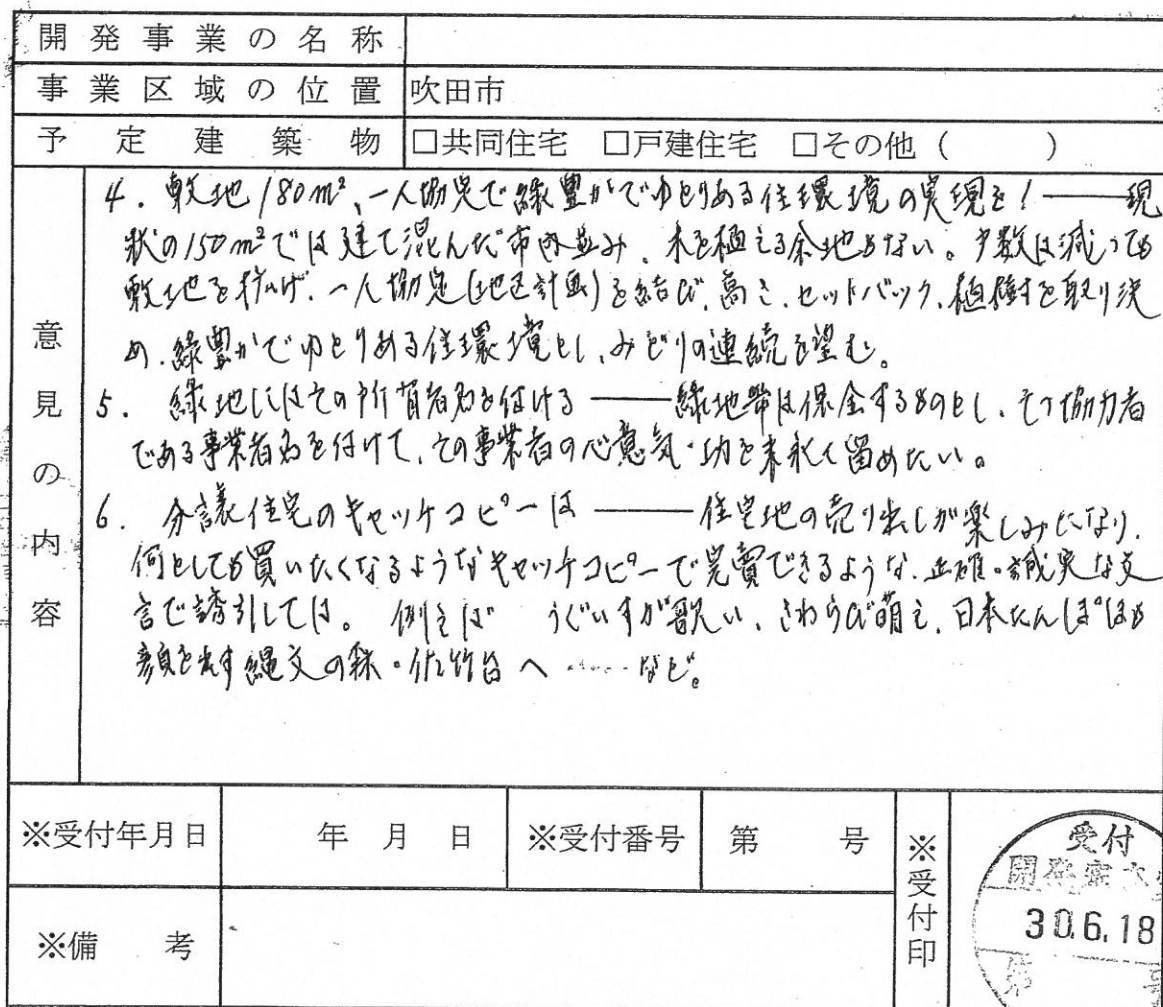 開発事業の名称
事業区域の位置 吹田市
予定建築物 □共同住宅 □戸建住宅 □その他( )
意見の内容
4. 敷地180m²、一人協定で緑豊かでゆとりある住環境の実現を! ――現
状の150m²では建て混んだ市内並み、木を植える余地もない。戸数は減っても
敷地を拡げ、一人協定(地区計画)を結び、高さ、セットバック、植樹を取り決
め、緑豊かでゆとりある住環境とし、みどりの連続を望む。
5. 緑地にはその所有者名を付ける ――緑地帯は保全するものとし、その協力者
である事業者名を付けて、その事業者の心意気・功を末永く留めたい。
6. 分譲住宅のキャッチコピーは ――住宅地の売り出しが楽しみになり、
何としても買いたくなるようなキャッチコピーで完売できるような、正確・誠実な文
言で誘引しては。 例えば うぐいすが歌い、さわらび萌え、日本たんぽぽも
顔を出す縄文の森・佐竹台へ ……など。
※受付年月日 年 月 日 ※受付番号 第 号 ※受付印
受付
開発審査室
30.6.18
第
※備考